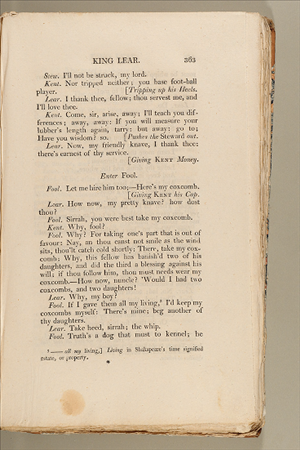 KING LEAR. 363
Stew. I'll not be struck, my lord.
Kent. Nor tripped neither; you base foot-ball
player. [Tripping up his Heels.
Lear. I thank thee, fellow; thou servest me, and
I'll love thee.
Kent. Come, sir, arise, away; I'll teach you dif-
ferences; away, away: If you will measure your
lubber's length again, tarry: but away: go to;
Have you wisdom? so. [Pushes the Steward out.
Lear. Now, my friendly knave, I thank thee:
there's earnest of thy service.
[Giving KENT Money.
Enter Fool.
Fool. Let me hire him too;—Here's my coxcomb.
[Giving KENT his Cap.
Lear. How now, my pretty knave? how dost
thou?
Fool. Sirrah, you were best take my coxcomb.
Kent. Why, fool?
Fool. Why? For taking one's part that is out of
favour: Nay, an thou canst not smile as the wind
sits, thou'lt catch cold shortly: There, take my cox-
comb; Why, this fellow has banish'd two of his
daughters, and did the third a blessing against his
will; if thou follow him, thou must needs wear my
coxcomb.—How now, nuncle? 'Would I had two
coxcombs, and two daughters!
Lear. Why, my boy?
Fool. If I gave them all my living, I'd keep my
coxcombs myself: There's mine; beg another of
thy daughters.
Lear. Take heed, sirrah; the whip.
Fool. Truth's a dog that must to kennel; he
—— all my living,] Living in Shakspeare's time signified
estate, or property.